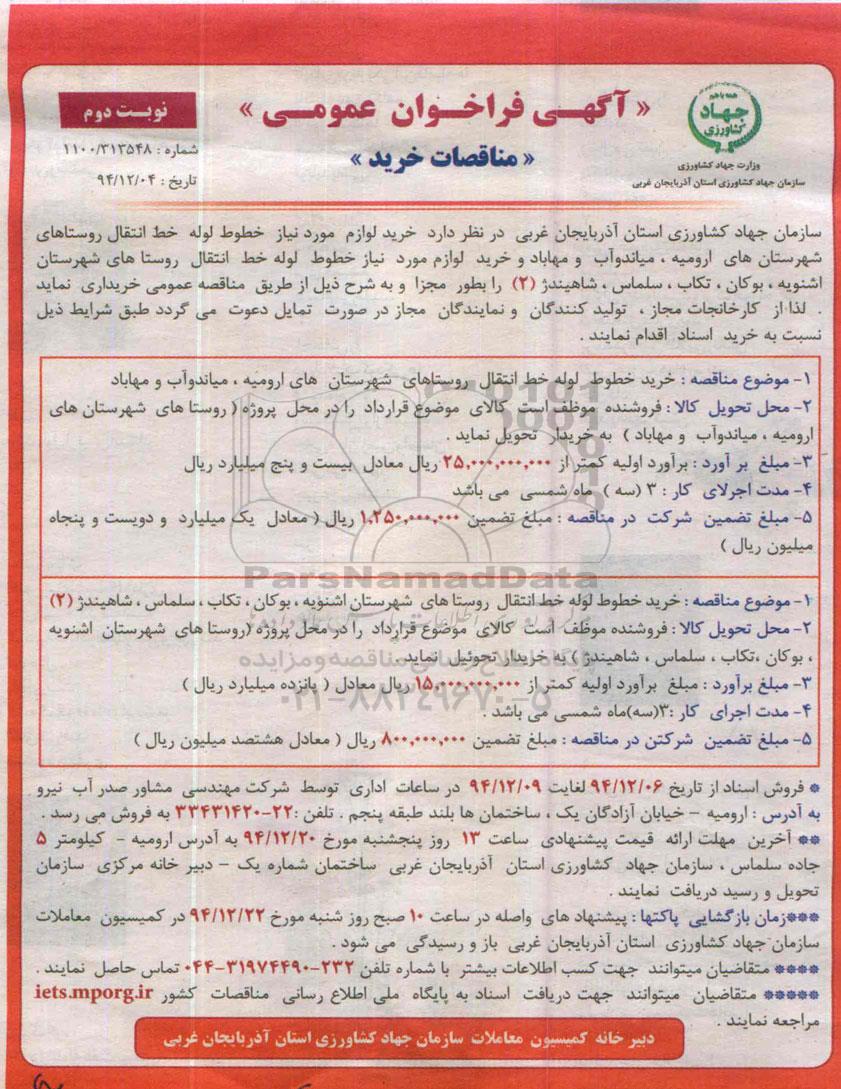 « آگهـی فراخـوان عمومـی »
« مناقصات خرید »
نوبت دوم
شماره : ۱۱۰۰/۳۱۳۵۴۸
تاریخ : ۹۴/۱۲/۰۴
همه با هم
جهاد
کشاورزی
وزارت جهاد کشاورزی
سازمان جهاد کشاورزی استان آذربایجان غربی
سازمان جهاد کشاورزی استان آذربایجان غربی در نظر دارد خرید لوازم مورد نیاز خطوط لوله خط انتقال روستاهای
شهرستان های ارومیه ، میاندوآب و مهاباد و خرید لوازم مورد نیاز خطوط لوله خط انتقال روستا های شهرستان
اشنویه ، بوکان ، تکاب ، سلماس ، شاهیندژ (۲) را بطور مجزا و به شرح ذیل از طریق مناقصه عمومی خریداری نماید
. لذا از کارخانجات مجاز ، تولید کنندگان و نمایندگان مجاز در صورت تمایل دعوت می گردد طبق شرایط ذیل
نسبت به خرید اسناد اقدام نمایند .
۱- موضوع مناقصه : خرید خطوط لوله خط انتقال روستاهای شهرستان های ارومیه ، میاندوآب و مهاباد
۲- محل تحویل کالا : فروشنده موظف است کالای موضوع قرارداد را در محل پروژه ( روستا های شهرستان های
ارومیه ، میاندوآب و مهاباد ) به خریدار تحویل نماید .
۳- مبلغ بر آورد : برآورد اولیه کمتر از ۲۵,۰۰۰,۰۰۰,۰۰۰ ریال معادل بیست و پنج میلیارد ریال
۴- مدت اجرلای کار : ۳ (سه ) ماه شمسی می باشد
۵- مبلغ تضمین شرکت در مناقصه : مبلغ تضمین ۱,۲۵۰,۰۰۰,۰۰۰ ریال ( معادل یک میلیارد و دویست و پنجاه
میلیون ریال )
ParsNamadData
۱- موضوع مناقصه : خرید خطوط لوله خط انتقال روستا های شهرستان اشنویه ، بوکان ، تکاب ، سلماس ، شاهیندژ (۲)
۲- محل تحویل کالا : فروشنده موظف است کالای موضوع قرارداد را در محل پروژه (روستا های شهرستان اشنویه
، بوکان ،تکاب ، سلماس ، شاهیندژ ) به خریدار تحوئیل نماید
پایگاه اطلاع رسانی مناقصه و مزایده
۳- مبلغ برآورد : مبلغ برآورد اولیه کمتر از ۱۵,۰۰۰,۰۰۰,۰۰۰ ریال معادل ( پانزده میلیارد ریال )
۰۲۱-۸۸۳۴۹۶۷۰-۵
۴- مدت اجرای کار :۳(سه)ماه شمسی می باشد .
۵- مبلغ تضمین شرکتن در مناقصه : مبلغ تضمین ۸۰۰,۰۰۰,۰۰۰ ریال ( معادل هشتصد میلیون ریال )
* فروش اسناد از تاریخ ۹۴/۱۲/۰۶ لغایت ۹۴/۱۲/۰۹ در ساعات اداری توسط شرکت مهندسی مشاور صدر آب نیرو
به آدرس : ارومیه – خیابان آزادگان یک ، ساختمان ها بلند طبقه پنجم . تلفن :۲۲-۳۳۴۳۱۴۲۰ به فروش می رسد .
** آخرین مهلت ارائه قیمت پیشنهادی ساعت ۱۳ روز پنجشنبه مورخ ۹۴/۱۲/۲۰ به آدرس ارومیه - کیلومتر ۵
جاده سلماس ، سازمان جهاد کشاورزی استان آذربایجان غربی ساختمان شماره یک – دبیر خانه مرکزی سازمان
تحویل و رسید دریافت نمایند .
***زمان بازگشایی پاکتها : پیشنهاد های واصله در ساعت ۱۰ صبح روز شنبه مورخ ۹۴/۱۲/۲۲ در کمیسیون معاملات
سازمان جهاد کشاورزی استان آذربایجان غربی باز و رسیدگی می شود .
**** متقاضیان میتوانند جهت کسب اطلاعات بیشتر با شماره تلفن ۲۳۲-۳۱۹۷۴۴۹۰-۰۴۴ تماس حاصل نمایند .
***** متقاضیان میتوانند جهت دریافت اسناد به پایگاه ملی اطلاع رسانی مناقصات کشور iets.mporg.ir
مراجعه نمایند .
دبیر خانه کمیسیون معاملات سازمان جهاد کشاورزی استان آذربایجان غربی